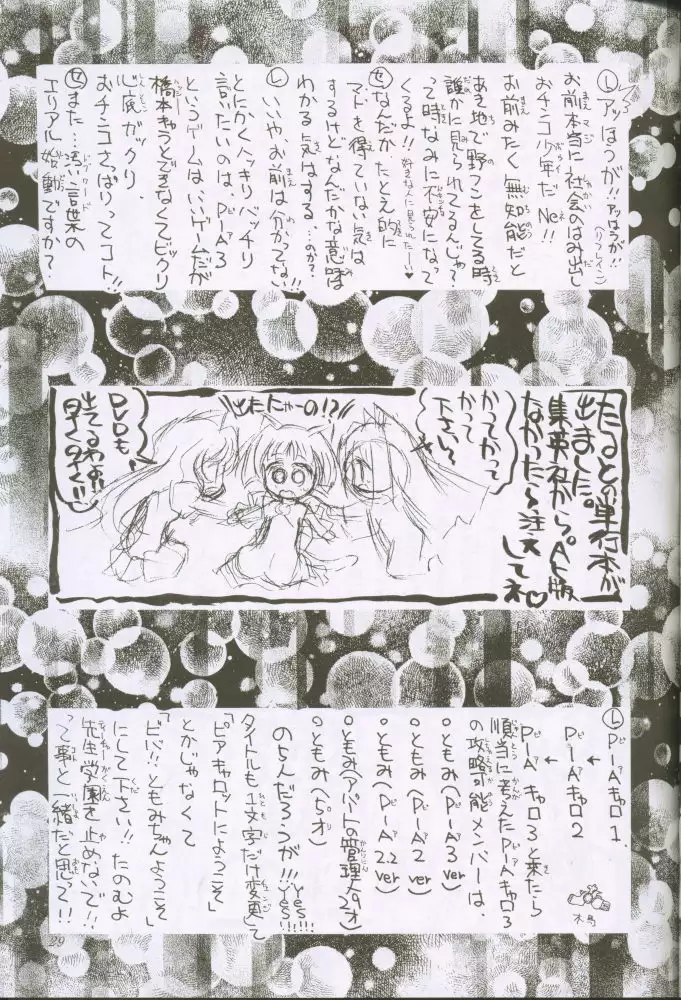 Ⓛアッはうが!!アッはうが!!(リフレイン)
お前本当に社会のはみ出し
おチンコ少年だNe!!
お前みたく無知能だと
あき地で野つこをしてる時
誰かに見られてるんじゃ?
って時なみに不安になって
くるよ!!好きな人に見られたー♥
Ⓢなんだかたとえ的に
マトを得ていない気は
するけどなんだかな意味は
わかる気はする…のか?
Ⓛいいや、お前は分かってない
とにかくハッキリバッチリ
言いたいのは、P・iA3
というゲームはいいゲームだが
橋本キャラとかできなくてビックリ
心底ガックリ、
おチンコさっぱりってコト!!
Ⓢまた…汚い言葉の
エリアル始動ですか?
たるとの単行本が
出ました。
集英社から。A5版
なかったら注文してネ♡
かってかって
かって
下さい〜
出たにゃーの!?
DVDも
出てるわよ!!
早く早く!!
ⓁP・iAキャロ1.
↓
P・iAキャロ2
↓
P・iAキャロ3と来たら
順当に考えたP・iAキャロ3
の攻略可能メンバーは、
○ともみ(P・iA3ver)
○ともみ(P・iA2ver)
○ともみ(P・iA2.2ver)
○ともみ(アパートの管理人29才)
○ともみ(5才)
のもんだろうが!!!yes!!yes!!!
タイトルも1文字だけ変更って
「ピアキャロットにようこそ」
とかじゃなくて
「ビバ!!ともみちゃんようこそ」
にして下さい!!たのむよ
先生学園を止めないで!!
って事と一緒だと思って!!
木号
29